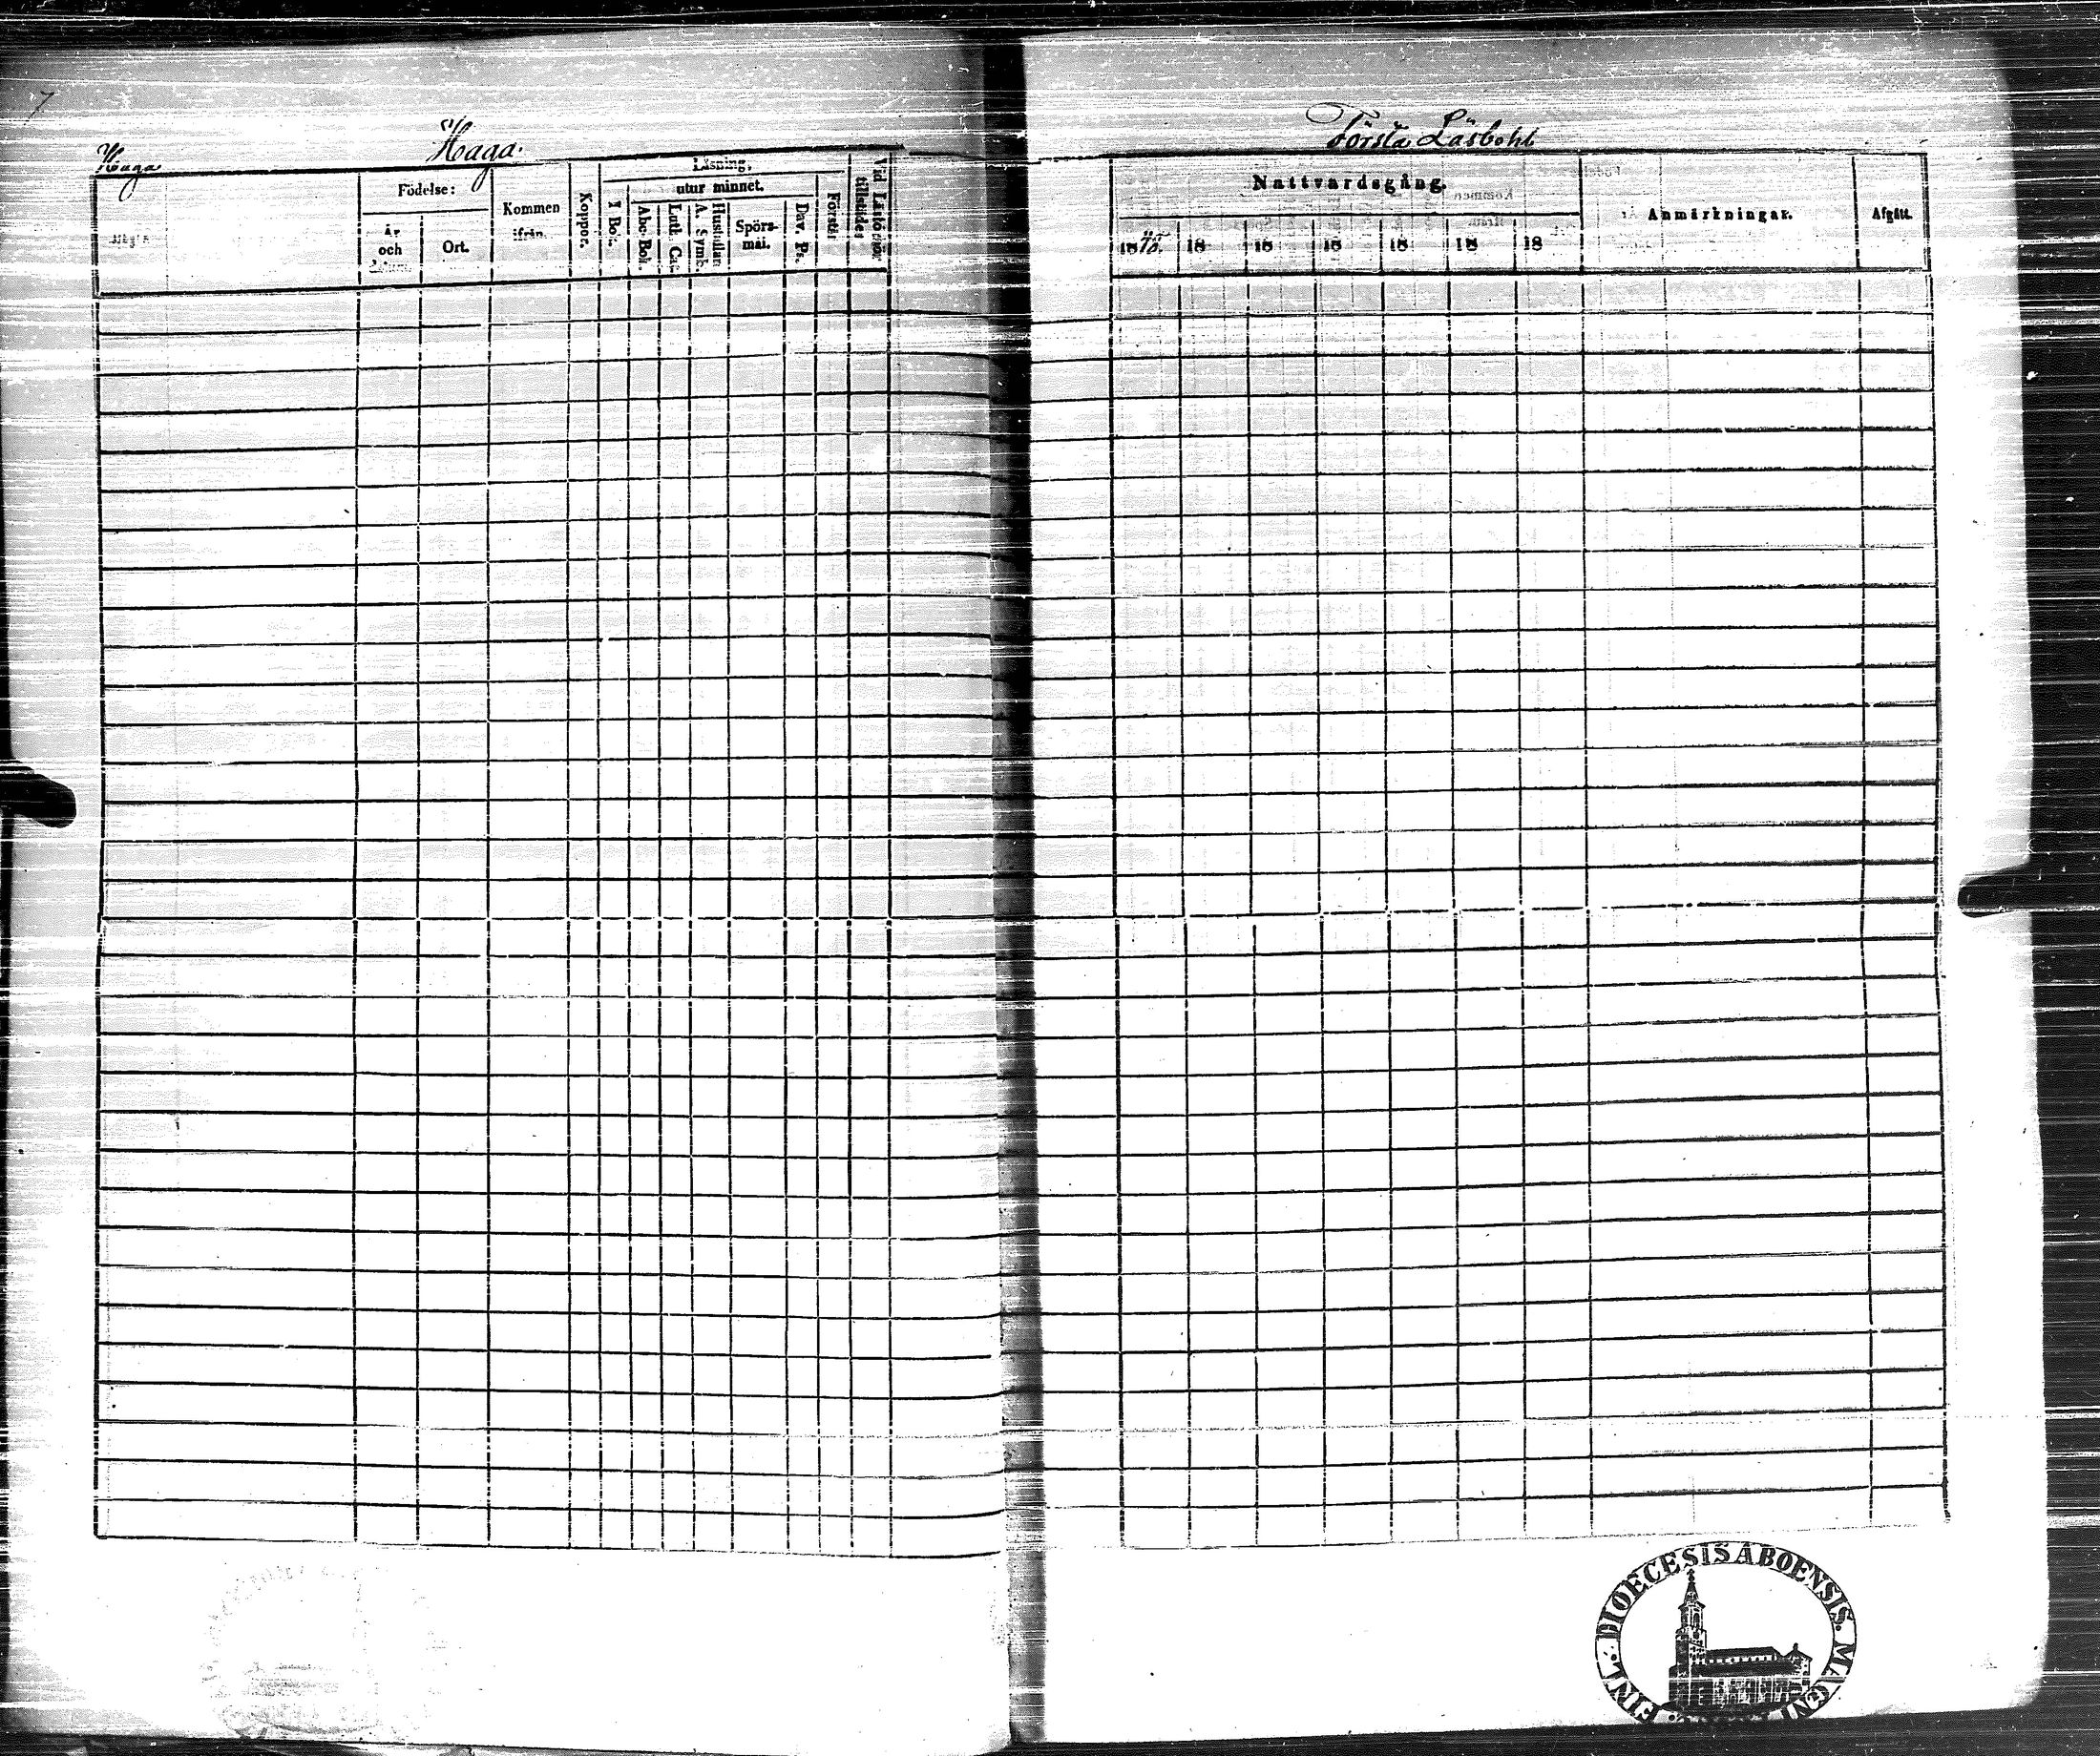 7
Haga.
Haga
Födelse:
År och
Ort.
Kommen ifrån.
Koppor.
Läsning.
utur minnet.
I Bok.
Abc-Bok.
Luth. Cat.
A. Symb.
Spörs-mål.
Dav. Ps.
Förstår
Vid Läsförhör tillstädes
Första Läsbohl
Nattvardsgång.
18
18
18
18
18
18
18
Anmärkningar.
Afgått.
DIOECESIS ABOENSIS. MAGNI
FINL.